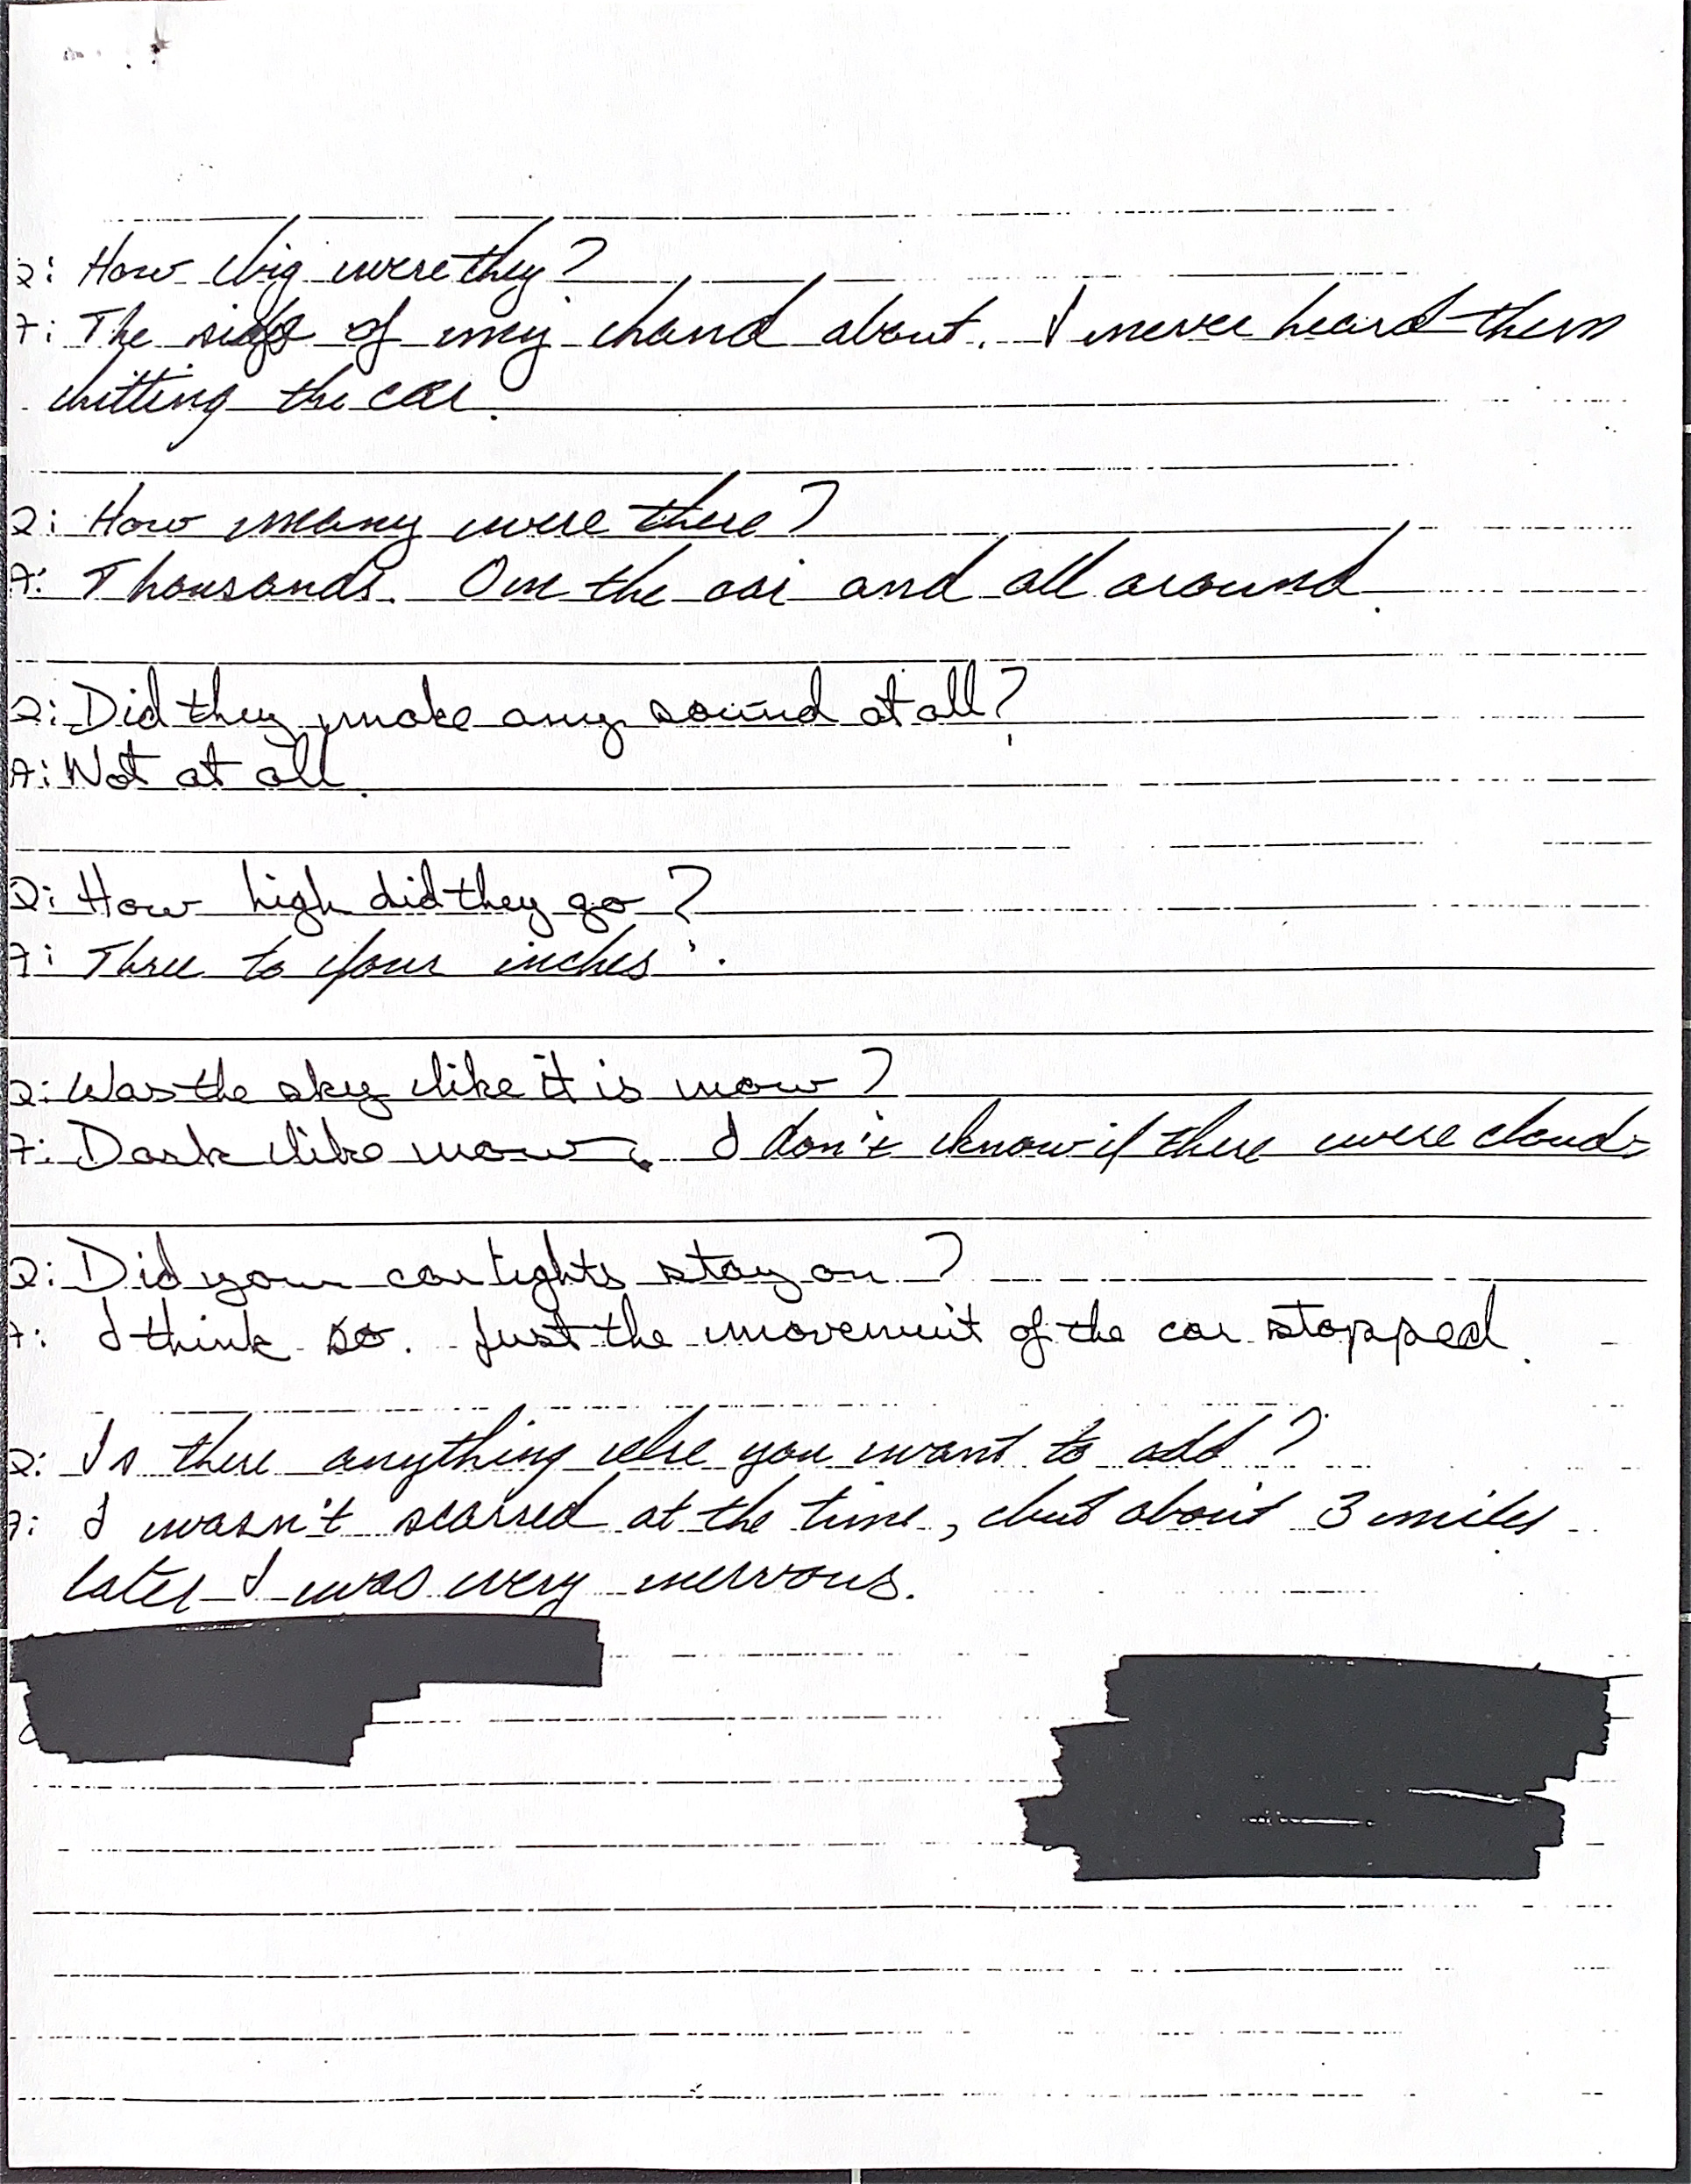 Q: How big were they?
A: The size of my hand about. I never heard them
hitting the car.
Q: How many were there?
A: Thousands. On the car and all around.
Q: Did they make any sound at all?
A: Not at all.
Q: How high did they go?
A: Three to four inches.
Q: Was the sky like it is now?
A: Dark like now. I don't know if there were clouds
Q: Did your car lights stay on?
A: I think so. Just the movement of the car stopped.
Q: Is there anything else you want to add?
A: I wasn't scarred at the time, but about 3 miles
later I was very nervous.